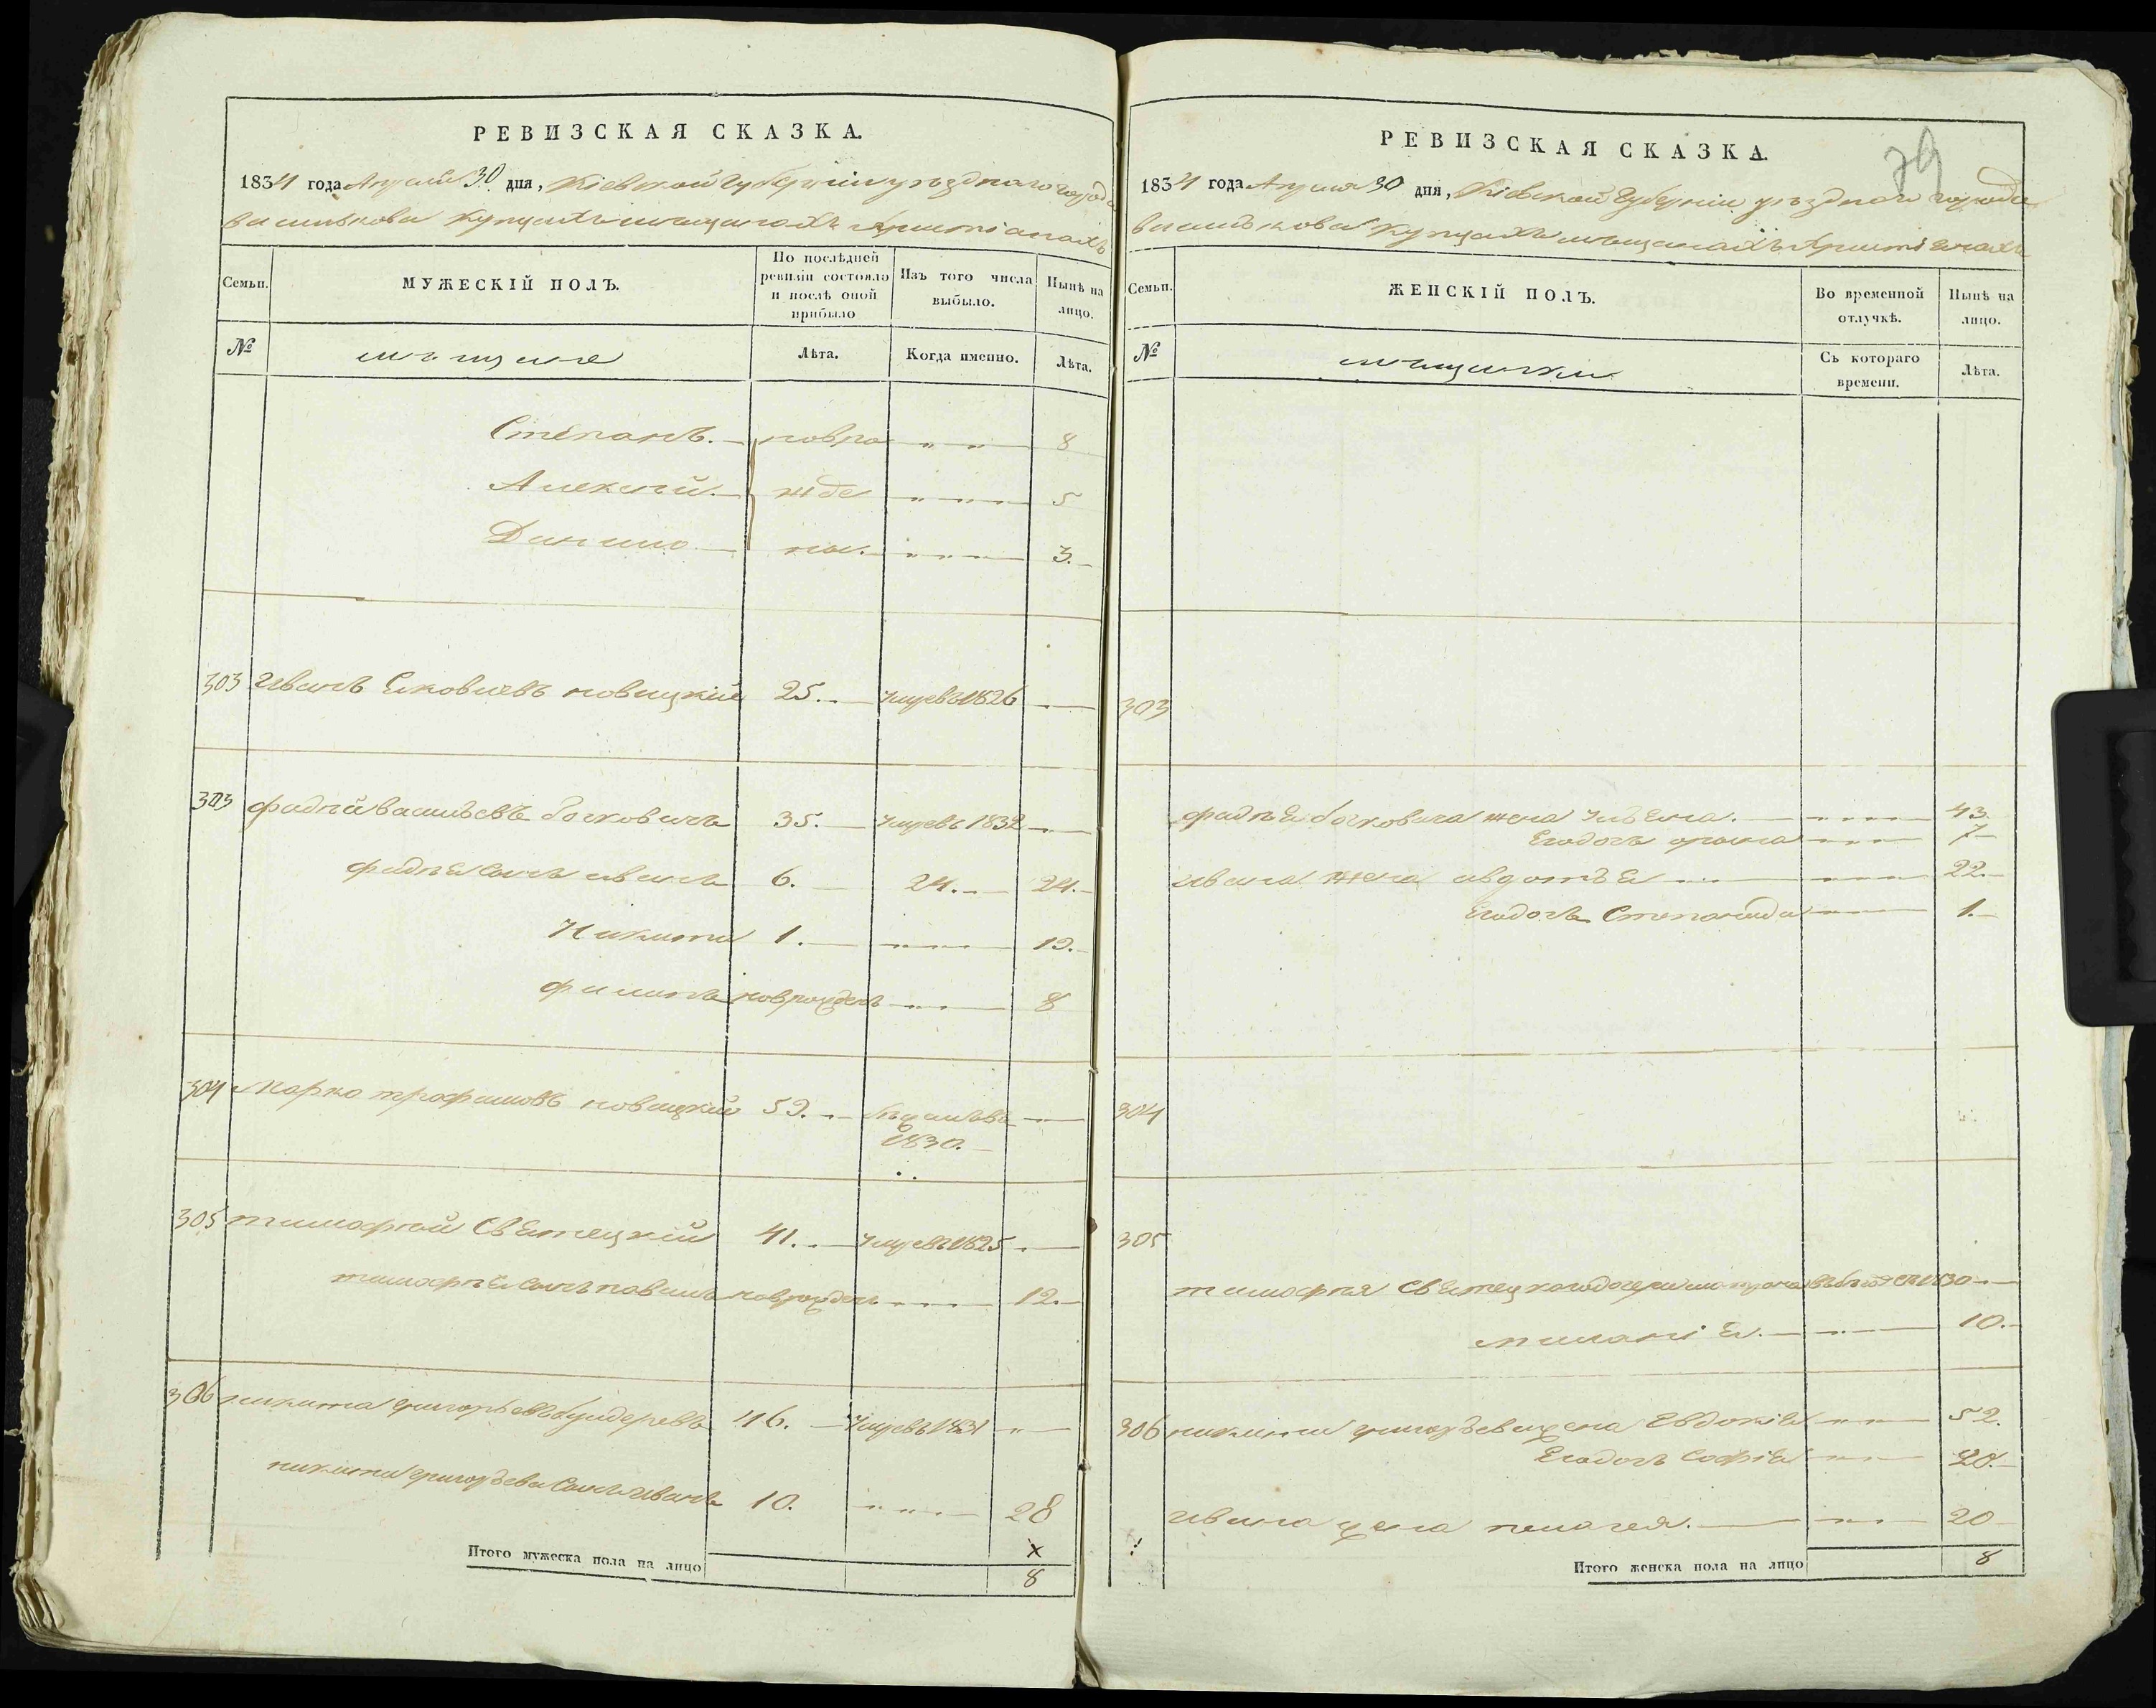 РЕВИЗСКАЯ СКАЗКА.
1834 года Апреля 30 дня, Кіевской Губерніи уѣзднаго города
Василькова Купцахъ мѣщанахъ христіанахъ
Семьи.
МУЖЕСКІЙ ПОЛЪ.
По послѣдней ревизіи состояло и послѣ оной прибыло
Изъ того числа выбыло.
Нынѣ на лицо.
№
мѣщане
Лѣта.
Когда именно.
Лѣта.
Степанъ. новро „ „ 8
Алексѣй. жде „ „ „ 5
Данило ны. „ „ „ 3.
303 Иванъ Яковлевъ новицкій 25. умре въ 1826
303 фадѣй васильевъ 35. умре въ 1832
фадѣя сынъ иванъ 6. 24. 24.
Никита 1. „ „ „ 19.
филипъ новрожденъ „ „ 8
304 Марко трофимовъ новицкій 59.
1830.
305 тимофѣй Святецкій 41. умре въ 1825
тимофѣя сынъ павелъ новрожденъ „ „ „ 12.
306 никита григорьевъ 46. умре въ 1831 „
никиты григорьева сынъ иванъ 10. „ „ „ 28
х
Итого мужеска пола на лицо 8
РЕВИЗСКАЯ СКАЗКА.
79
1834 года Апреля 30 дня, Кіевской Губерніи уѣзднаго города
Василькова Купцахъ мѣщанахъ христіанахъ
Семьи.
ЖЕНСКІЙ ПОЛЪ.
Во временной отлучкѣ.
Нынѣ на лицо.
№
мѣщанки
Съ котораго времени.
Лѣта.
303
фадѣя жена ульяна. „ „ „ „ 43.
Егодочь орина „ „ „ 7
ивана жена авдотья „ „ „ „ 22.
Егодочь Степанида 1.
304
305
тимофѣя Святецкого дочери 1830
миланія. „ „ 10.
306 никиты григорьева жена Евдокія „ „ 52.
Егодочь Софія „ „ 20.
ивана жена пелагея. „ „ 20
Итого женска пола на лицо 8